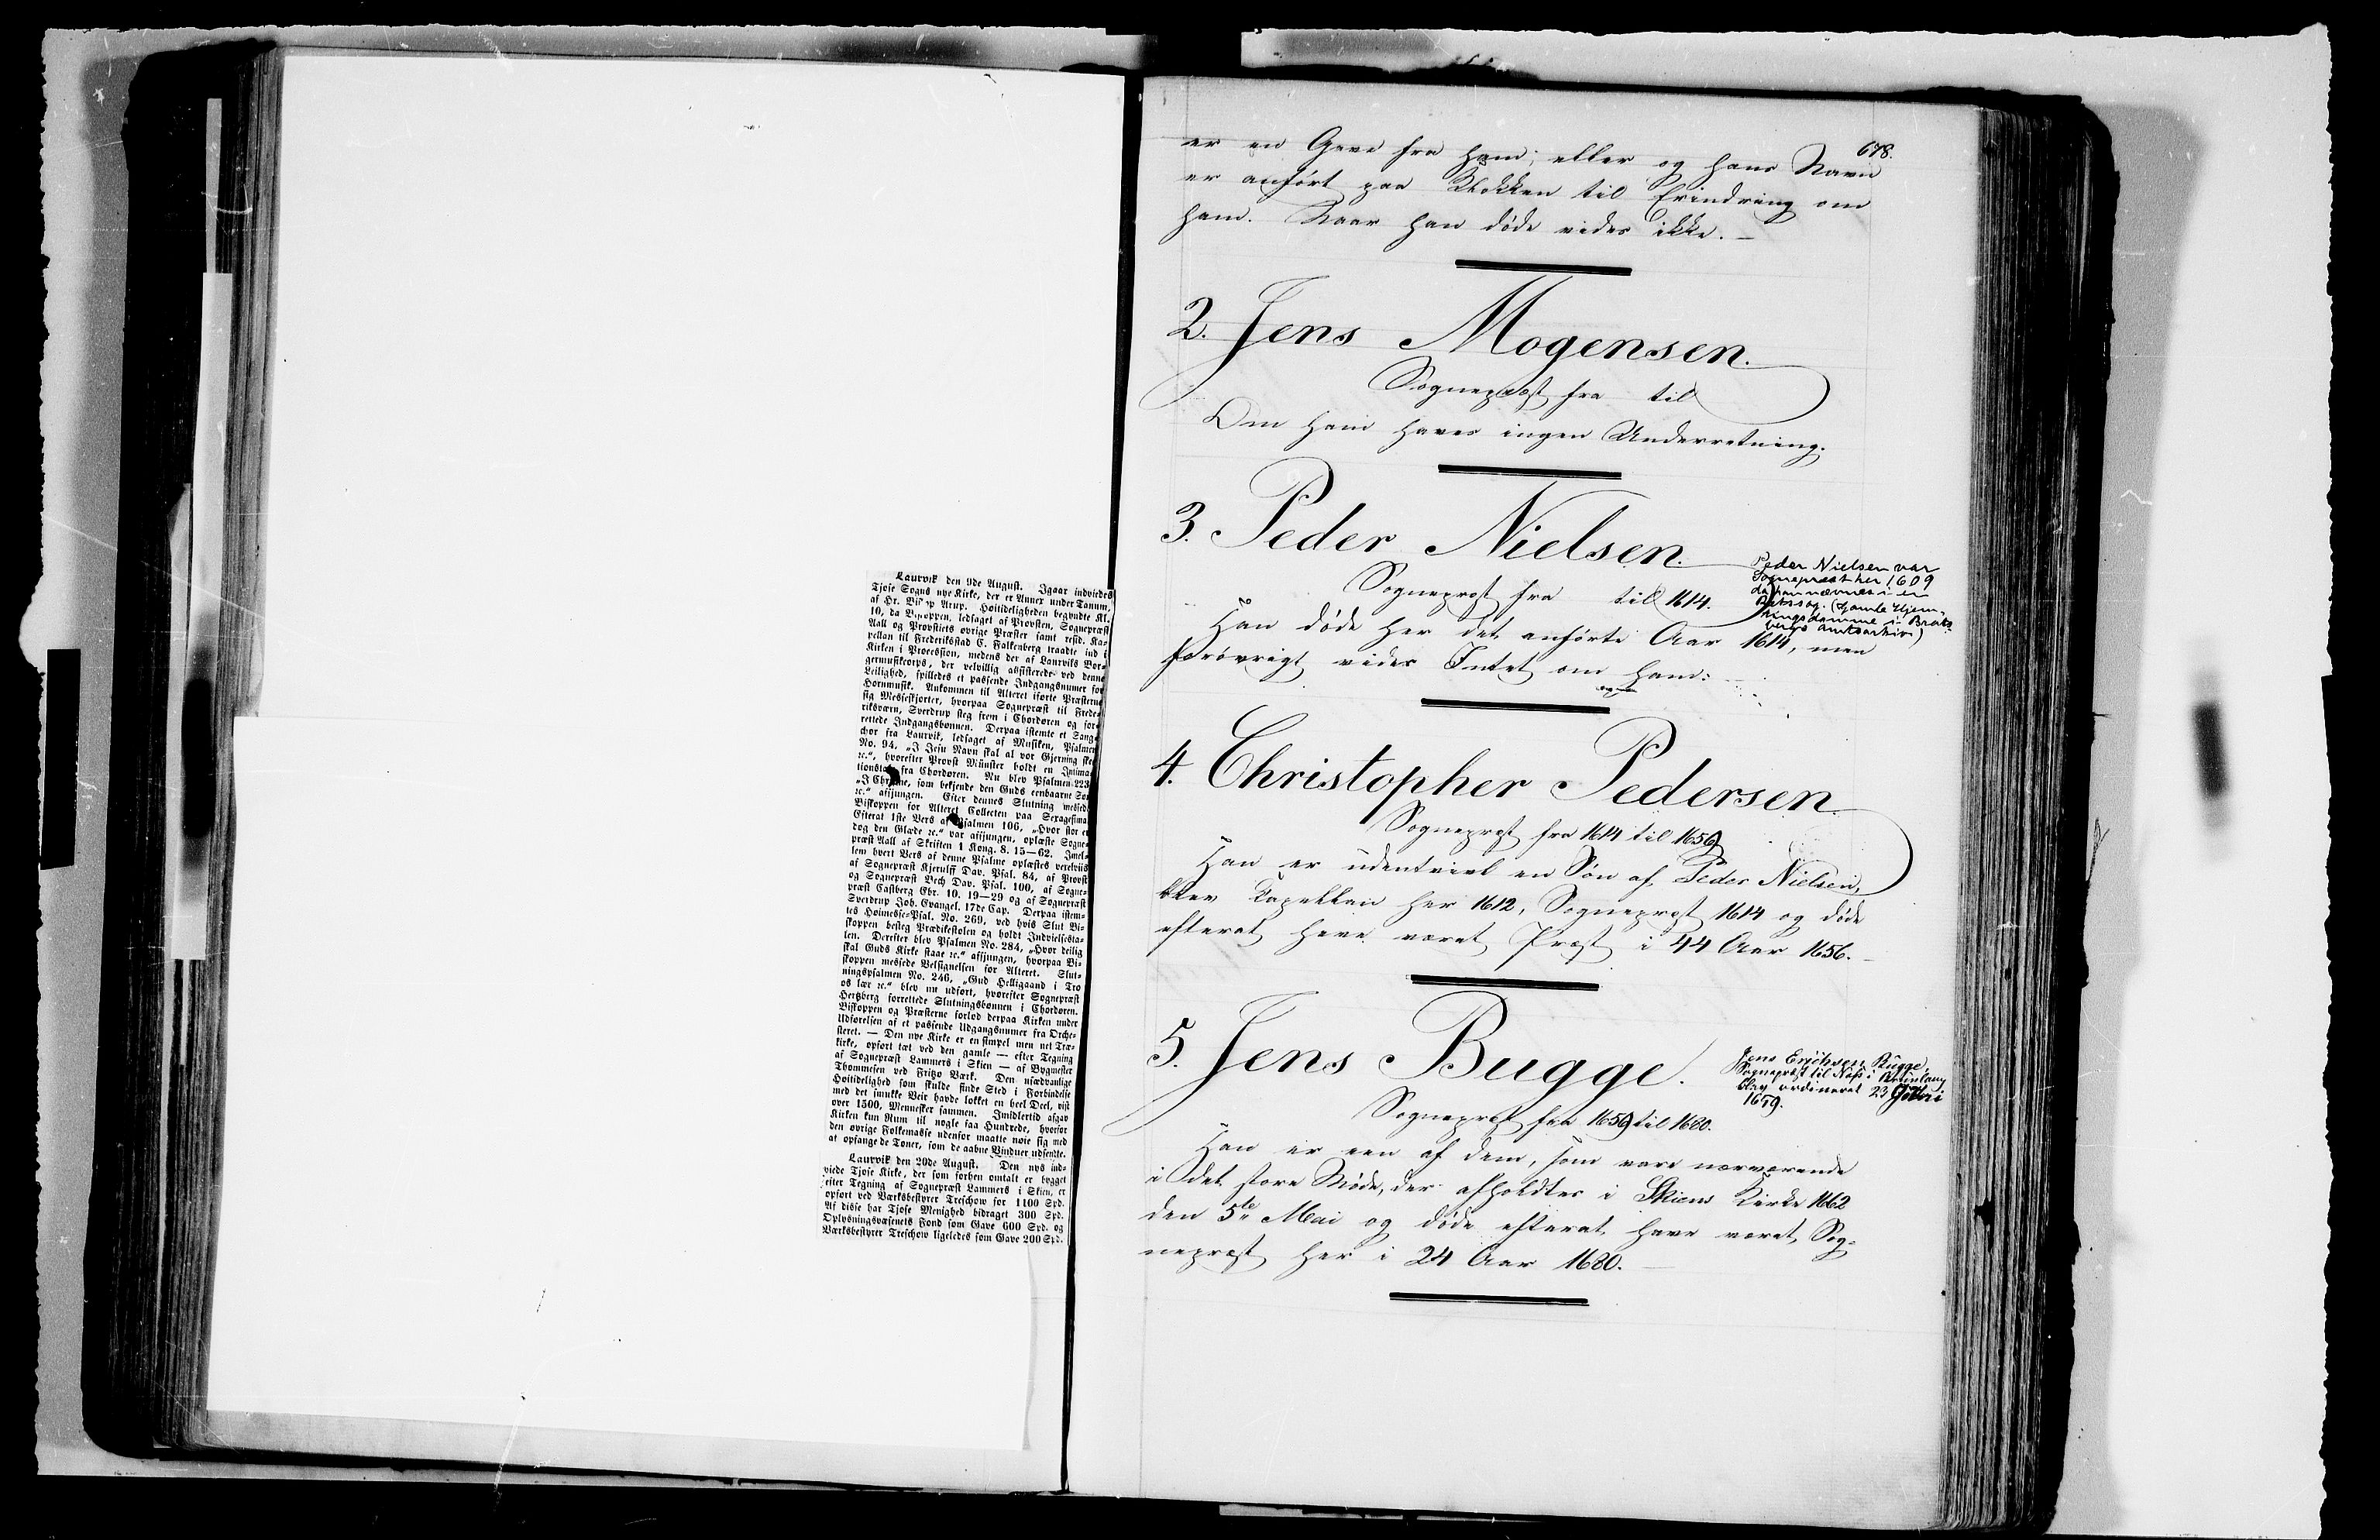 Laurvik den 9de August. Igaar indviedes
Tjose Sogns nye Kirke, der er Annex under Tanum,
af Hr. Arup. Høitideligheden begyndte Kl.
10, da ledsaget af Provsten, Sognepræst
Aall og Provstiets øvrige Præster samt resid. Ka-
pellan til Frederikstad C. Falkenberg traadte ind i
Kirken i Procession, medens der af Laurviks Bor-
germusikcorps, der velvillig assisterede ved denne
Leilighed, spilledes et passende Indgangsnumer for
Hornmusik. Ankommen til Alteret iførte Præsterne
sig Messeskjorter, hvorpaa Sognepræst til Frede-
riksværn, Sverdrup steg frem i Chordøren og for-
rettede Indgangsbønnen. Derpaa istemte et Sang-
chor fra Laurvik, ledsaget af Musiken, Psalmen
No. 94, „I Jesu Navn skal al vor Gjerning ske
ꝛc.“, hvorefter Provst Münster holdt en Intima-
fra Chordøren. Nu blev Psalmen 223
som bekjende den Guds eenbaarne Søn
ꝛc.“ afsjungen. Efter dennes Slutning messede
Biskoppen for Alteret Collecten paa Sexagesima.
Efterat 1ste Vers af Psalmen 106, „Hvor stor er
dog den Glæde ꝛc.“ var afsjungen, oplæste Sogne-
præst Aall af Skriften 1 Kong. 8. 15—62. Imel-
lem hvert Vers af denne Psalme oplæstes vexelviis
af Sognepræst Kjerulff Dav. Psal. 84, af Provst
og Sognepræst Bech Dav. Psal. 100, af Sogne-
præst Castberg Ebr. 10. 19—29 og af Sognepræst
Sverdrup Joh. Evangel. 17de Cap. Derpaa istem-
tes Høimesse-Psal. No. 269, ved hvis Slut Bi-
skoppen besteg Prædikestolen og holdt Indvielsesta-
len. Derefter blev Psalmen No. 284, „Hvor deilig
skal Guds Kirke staae ꝛc.“ afsjungen, hvorpaa Bi-
skoppen messede Velsignelsen for Alteret. Slut-
ningspsalmen No. 246, „Gud Helligaand i Tro
os lær ꝛc.“ blev nu udført, hvorefter Sognepræst
Hertzberg forrettede Slutningsbønnen i Chordøren.
Biskoppen og Præsterne forlod derpaa Kirken under
Udførelsen af et passende Udgangsnummer fra Orche-
steret. — Den nye Kirke er en simpel men net Træ-
kirke, opført tæt ved den gamle — efter Tegning
af Sognepræst Lammers i Skien — af Bygmester
Thommesen ved Fritzø Værk. Den usædvanlige
Høitidelighed som skulde finde Sted i Forbindelse
med det smukke Veir havde lokket en heel Deel, vist
over 1500, Mennesker sammen. Imidlertid afgav
Kirken kun Rum til nogle faa Hundrede, hvorfor
den øvrige Folkemasse udenfor maatte nøie sig med
at opfange de Toner, som de aabne Vinduer udsendte.
Laurvik den 20de August. Den nys ind-
viede Tjose Kirke, der som forhen omtalt er bygget
efter Tegning af Sognepræst Lammers i Skien, er
opført ved Værksbestyrer Treschow for 1100 Spd.
Af disse har Tjose Menighed bidraget 300 Spd.
Oplysningsvæsenets Fond som Gave 600 Spd. og
Værksbestyrer Treschow ligeledes som Gave 200 Spd.
678.
er en Gave fra ham; eller og hans Navn
er anført paa Klokken til Erindring om
ham. Naar han døde vides ikke.
2. Jens Mogensen.
Sognepræst fra til
Om ham haves ingen Underretning.
3. Peder Nielsen.
Peder Nielsen var
Sognepræst her 1609
da han nævnes i en
Retssag. (Gamle Hjem-
tingsdomme i Brats-
bergs amtsarkiv)
Sognepræst fra til 1614.
Han døde her det anførte Aar 1614, men
forøvrigt vides Intet om ham.
4. Christopher Pedersen
Sognepræst fra 1614 til 1659
Han er udentvivl en Søn af Peder Nielsen,
blev Kapellan her 1612, Sognepræst 1614 og døde
efterat have været Præst i 44 Aar 1656.
5. Jens Bugge.
Jens Erichsen Bugge,
Sognepræst til Næs i Brünlaug
blev ordineret 23
1659.
Sognepræst fra 1659 til 1680.
Han er een af dem, som vare nærværende
i det store Møde, der afholdtes i Skiens Kirke 1662
den 5te Mai og døde efterat have været Sog-
nepræst her i 24 Aar 1680.